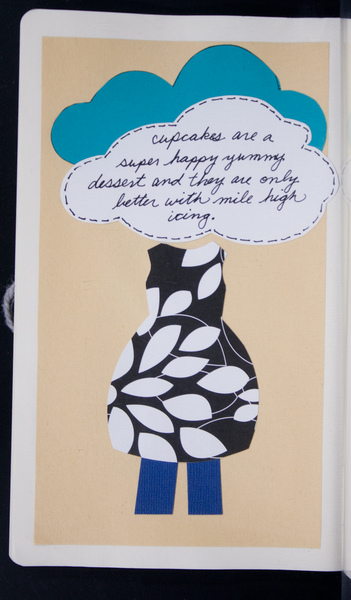 cupcakes are a
super happy yummy
dessert and they are only
better with mile high
icing.